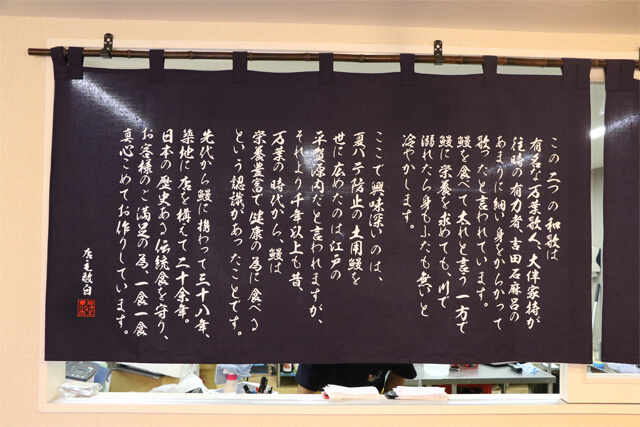 この二つの和歌は
有名な万葉歌人、大伴家持が
往時の有力者、吉田石麻呂の
あまりに細い身をからかって
歌ったと言われています。
鰻を食べて太れと言う一方で
鰻に栄養を求めても、川で
溺れたら身もふたも無いと
冷やかします。
ここで興味深いのは、
夏バテ防止の土用鰻を
世に広めたのは江戸の
平賀源内だと言われますが、
それより千年以上も昔、
万葉の時代から、鰻は
栄養豊富で健康の為に食べる
という認識があったことです。
先代から鰻に携わって三十八年、
築地に店を構えて二十余年。
日本の歴史ある伝統食を守り、
お客様のご満足の為、一食一食
真心こめてお作りしています。
店主敬白